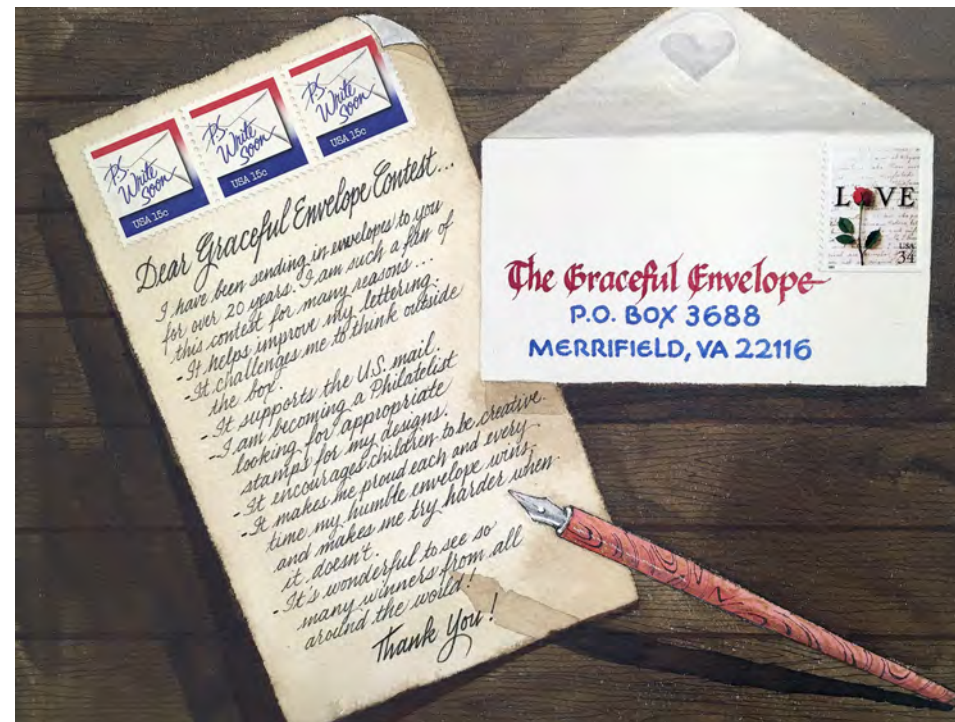 PS Write Soon
USA 15c
PS Write Soon
USA 15c
PS Write Soon
USA 15c
Dear Graceful Envelope Contest...
I have been sending in envelopes to you
for over 20 years. I am such a fan of
this contest for many reasons...
-It helps improve my lettering.
-It challenges me to think outside
the box.
-It supports the U.S. mail.
-I am becoming a Philatelist
looking for appropriate
stamps for my designs.
-It encourages children to be creative.
-It makes me proud each and every
time my humble envelope wins,
and makes me try harder when
it doesn't.
-It's wonderful to see so
many winners from all
around the world!
Thank You!
LOVE
USA
34
The Graceful Envelope
P.O. BOX 3688
MERRIFIELD, VA 22116